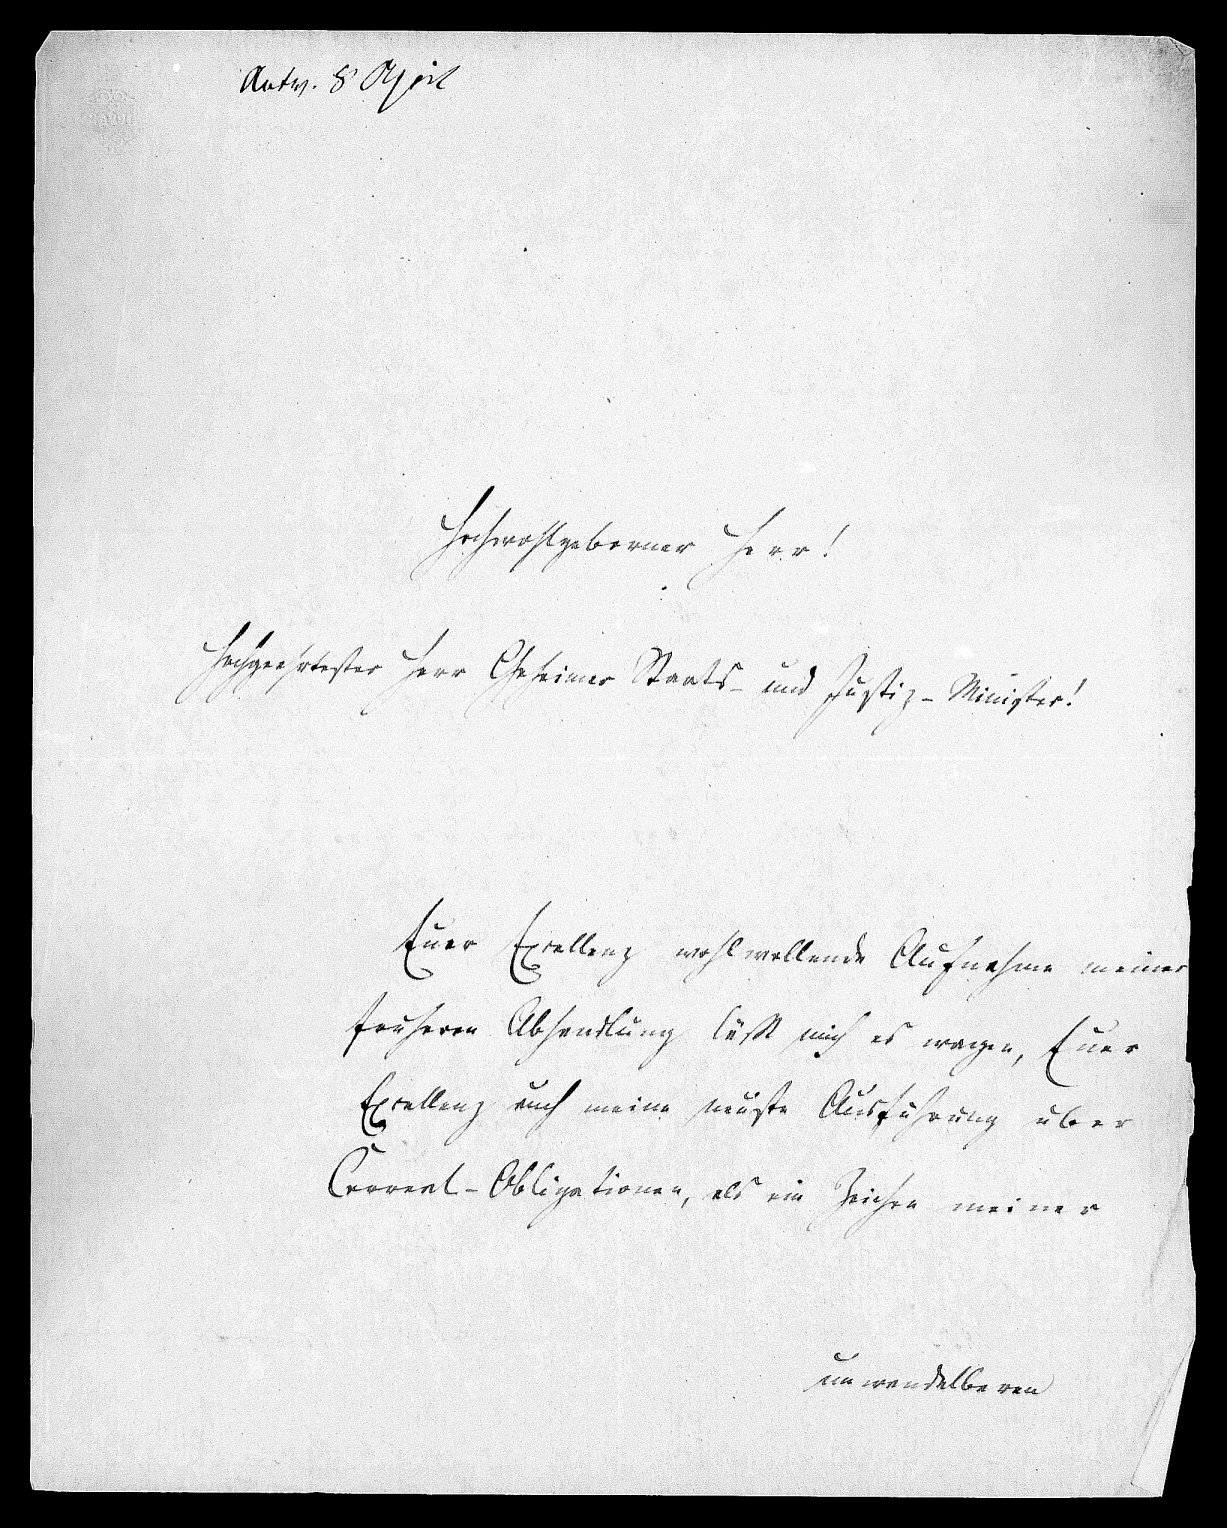 Antw. 8 April
Hochwohlgeborner Herr!
Hochgeehrtester Herr Geheimer Staats- und Justiz-Minister!
Euer Excellenz wohlwollende Aufnahme meiner
früheren Abhandlung läßt mich es wagen, Euer
Excellenz auch meine neuste Ausführung über
Correal-Obligationen, als ein Zeichen meiner
unwandelbaren